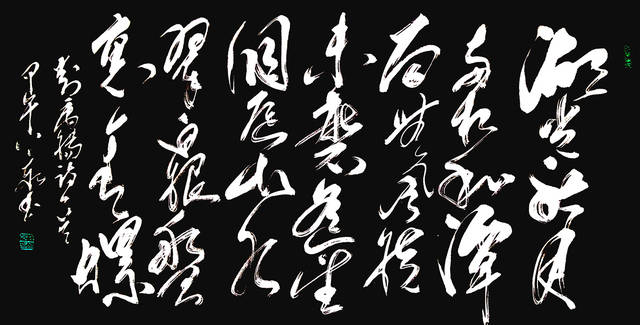 湖光秋月
两相和潭
面无风镜
未磨遥望
洞庭山水
翠白银盘
裏一青螺
刘禹锡诗一首
甲午书